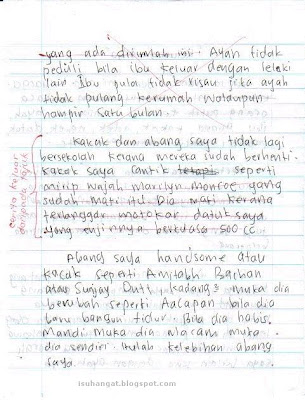 yang ada dirumah ini. Ayah tidak
peduli bila ibu keluar dengan lelaki
lain. Ibu pula tidak risau jika ayah
tidak pulang kerumah walaupun
hampir satu bulan.
Kakak dan abang saya tidak lagi
bersekolah kerana mereka sudah berhenti.
kakak saya cantik tetapi seperti
mirip wajah marilyn monroe yang
sudah mati itu. Dia mati kerana
terlanggar motokar datuk saya
yang enjinnya berkuasa 500 CC
cerita keluar daripada tajuk
Abang saya handsome atau
kacak seperti Amitabh Bachan
atau Sunjay Dutt kadang2 muka dia
berubah seperti Aacapan bila dia
baru bangun tidur. Bila dia habis
mandi muka dia macam muka
dia sendiri. Itulah kelebihan abang
saya.
isuhangat.blogspot.com